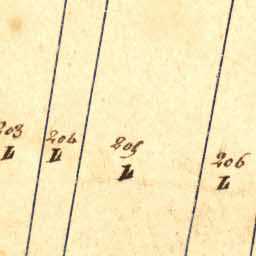 203
L
204
L
205
L
206
L